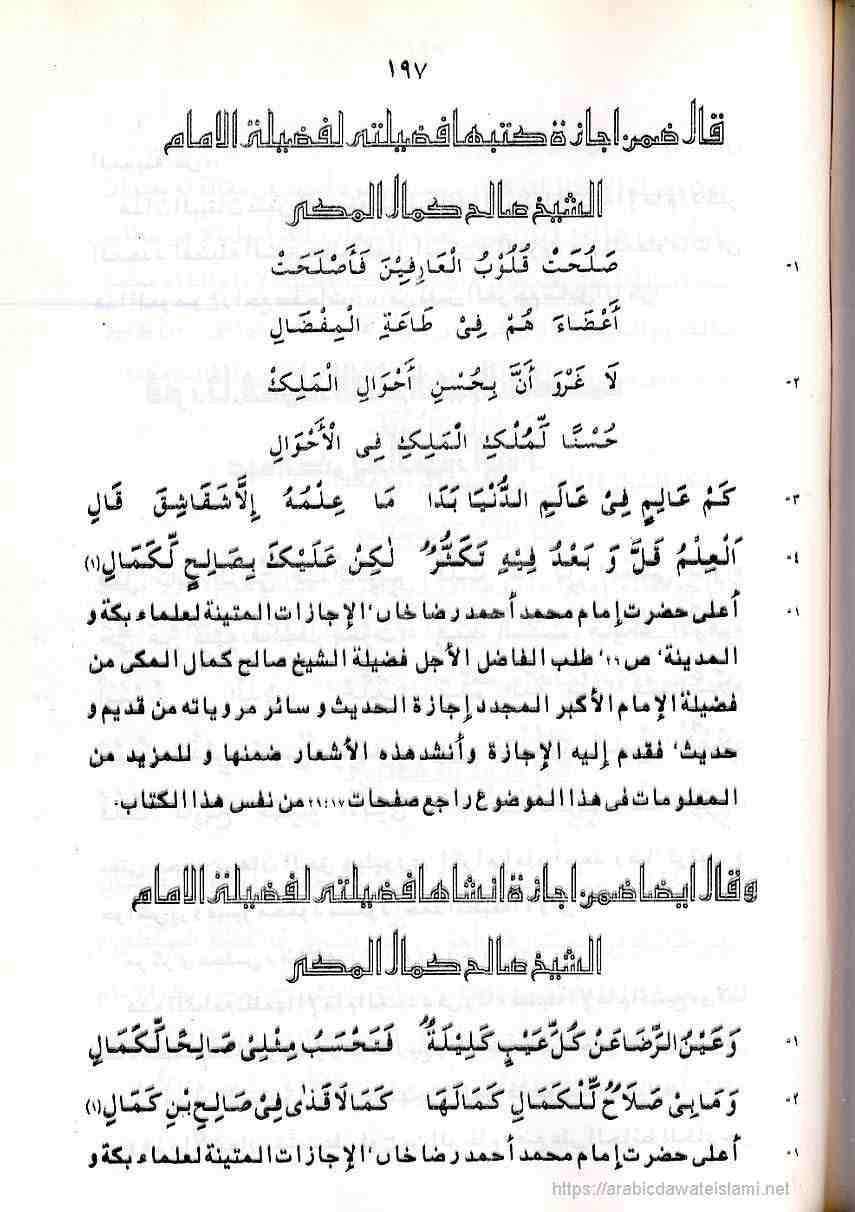 ١٩٧
قال ضمن اجازة كتبها فضيلته لفضيلة الامام
الشيخ صالح كمال المكى
١- صَلُحَتْ قُلُوْبُ الْعَارِفِيْنَ فَأَصْلَحَتْ
أَعْضَاءَ هُمْ فِىْ طَاعَةِ الْمِفْضَالِ
٢- لَا غَرْوَ أَنَّ بِحُسْنِ أَحْوَالِ الْمَلِكْ
حُسْنًا لِّمُلْكِ الْمَلِكِ فِى الْأَحْوَالِ
٣- كَمْ عَالِمٍ فِىْ عَالَمِ الدُّنْيَا بَدَا مَا عِلْمُهُ إِلَّا شَقَاشِقَ قَالِ
٤- اَلْعِلْمُ قَلَّ وَ بَعْدُ فِيْهِ تَكَثُّرٌ لٰكِنْ عَلَيْكَ بِصَالِحٍ لِّكَمَالِ(١)
١- أعلى حضرت إمام محمد أحمد رضا خاں، الإجازات المتينة لعلماء بكة و
المدينة، ص ٢٢، طلب الفاضل الأجل فضيلة الشيخ صالح كمال المكى من
فضيلة الإمام الأكبر المجدد إجازة الحديث و سائر مروياته من قديم و
حديث، فقدم إليه الإجازة وأنشد هذه الأشعار ضمنها و للمزيد من
المعلومات فى هذا الموضوع راجع صفحات من نفس هذا الكتاب-
وقال ايضا ضمن اجازة انشاها فضيلته لفضيلة الامام
الشيخ صالح كمال المكى
١- وَعَيْنُ الرِّضَا عَنْ كُلِّ عَيْبٍ كَلِيْلَةٌ فَتَحْسَبُ مِثْلِىْ صَالِحًا لِّكَمَالٍ
٢- وَمَا بِىْ صَلَاحٌ لِّلْكَمَالِ كَمَالَهَا كَمَا لَا قَذٰى فِىْ صَالِحِ بْنِ كَمَالٍ(١)
١- أعلى حضرت إمام محمد أحمد رضا خاں، الإجازات المتينة لعلماء بكة و
https://arabicdawateislami.net